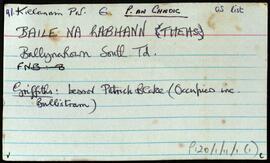 91 Killannin Par. G. P. an Chnoic GS list
BAILE NA hABHANN (THEAS)
Ballynahown South Td.
FNB - B
Griffith: Lessor Patrick Blake (Occupiers inc.
P120/1/1/1 (1)